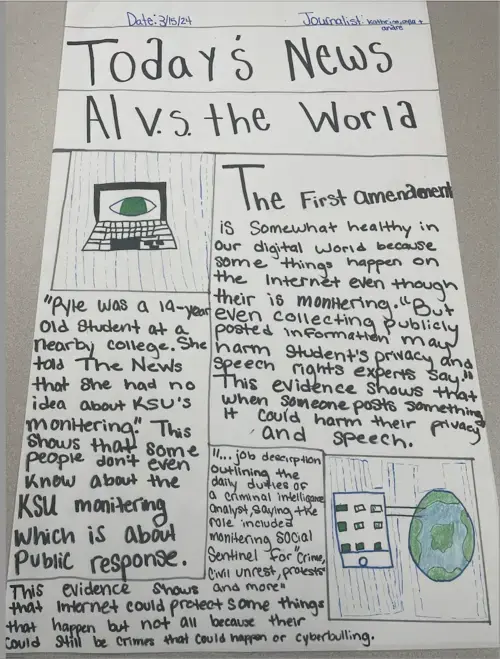 Date: 3/15/24
Journalist: Katherine, +
andre
Today's News
AI V.S. the World
The First amendment
is Somewhat healthy in
our digital world because
some things happen on
the Internet even though
their is monitering. "But
even collecting publicly
posted information may
harm student's privacy and
speech rights experts say."
This evidence shows that
when someone posts something
it could harm their privacy
and speech.
"Pyle was a 19-year
old student at a
nearby college. She
told The News
that she had no
idea about KSU's
monitering" This
shows that some
people don't even
know about the
KSU monitering
which is about
Public response.
"... job description
outlining the
daily duties of
a criminal intelligence
analyst saying the
role included
monitering social
Sentinel for "Crime,
Civil unrest, protests
and more"
This evidence shows
that Internet could protect some things
that happen but not all because their
could still be crimes that could happen or cyberbulling.